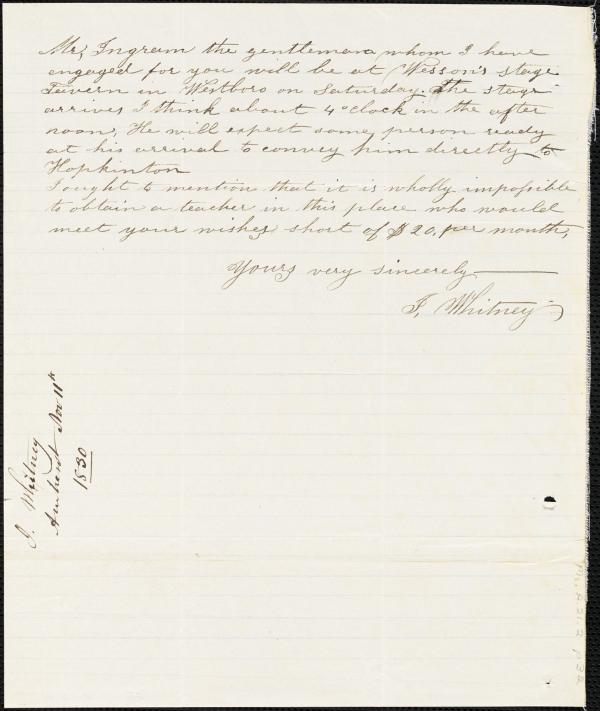 Mr, Ingram the gentleman whom I have
engaged for you will be at Wesson's stage
Tavern in Westboro on Saturday, The stage
arrives I think about 4 o'clock in the after
noon, He will expect some person ready
at his arrival to convey him directly to
Hopkinton
I ought to mention that it is wholly impossible
to obtain a teacher in this place who would
meet your wishes short of $20, per month,
Yours very sincerely
J, Whitney
J. Whitney
Amherst Nov 11th
1830